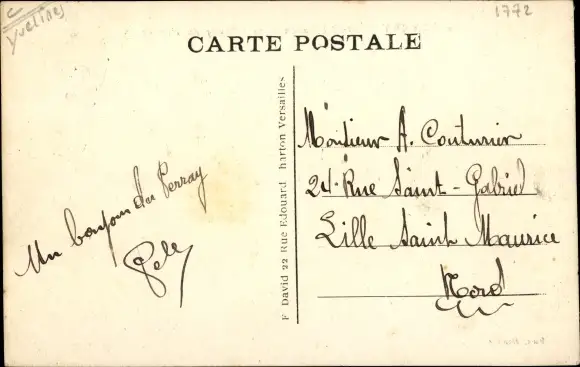 C
Yvelines
1772
CARTE POSTALE
Un bonjour du Perray
F David 22 Rue Edouard harton Versailles
Monsieur A. Couturier
24 Rue Saint-Gabriel
Lille Saint Maurice
Nord